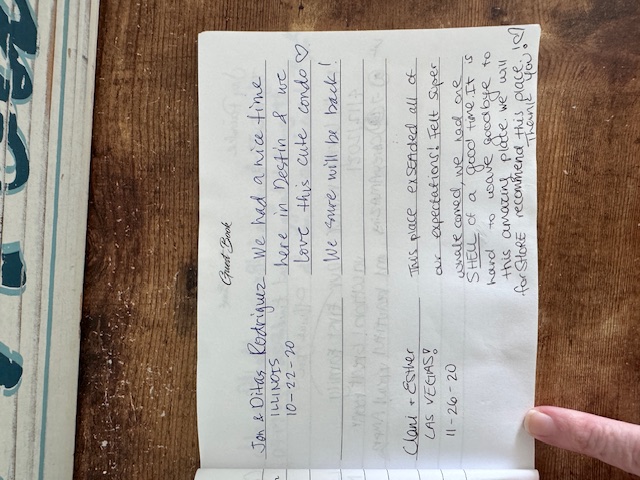 Guest Book
Jon & Ditas Rodriguez
ILLINOIS
10-22-20
We had a nice time
here in Destin & we
Love this cute condo ♡
We sure will be back!
Clani + Esther
LAS VEGAS!
11-26-20
This place exSEAded all of
our expectations! Felt super
whale comed, we had one
SHELL of a good time. It is
hard to wave goodbye to
this amazing place. We will
for SHORE recommend this place.
Thank you! !♡